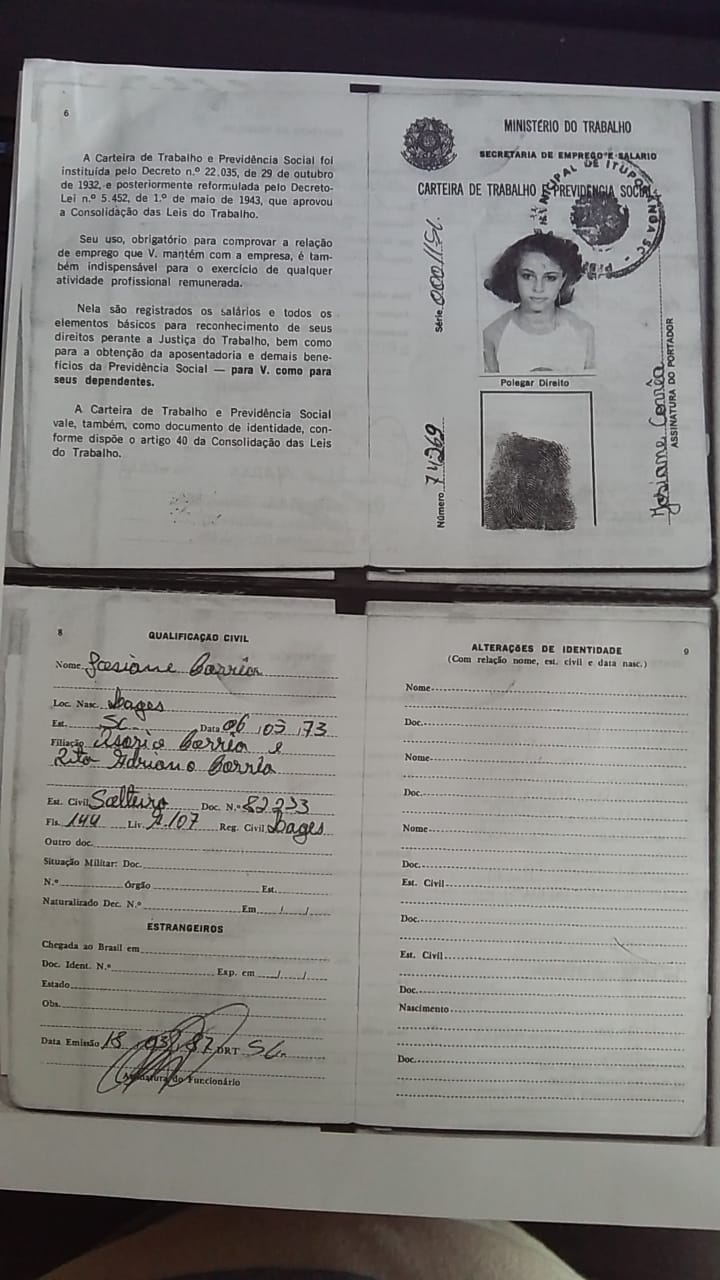 6
A Carteira de Trabalho e Previdência Social foi
instituída pelo Decreto n.º 22.035, de 29 de outubro
de 1932, e posteriormente reformulada pelo Decreto-
Lei n.º 5.452, de 1.º de maio de 1943, que aprovou
a Consolidação das Leis do Trabalho.
Seu uso, obrigatório para comprovar a relação
de emprego que V. mantém com a empresa, é tam-
bém indispensável para o exercício de qualquer
atividade profissional remunerada.
Nela são registrados os salários e todos os
elementos básicos para reconhecimento de seus
direitos perante a Justiça do Trabalho, bem como
para a obtenção da aposentadoria e demais bene-
fícios da Previdência Social — para V. como para
seus dependentes.
A Carteira de Trabalho e Previdência Social
vale, também, como documento de identidade, con-
forme dispõe o artigo 40 da Consolidação das Leis
do Trabalho.
MINISTÉRIO DO TRABALHO
SECRETARIA DE EMPREGO E SALÁRIO
CARTEIRA DE TRABALHO E PREVIDÊNCIA SOCIAL
Série
Número 74269
Polegar Direito
Josiane Corrêa
ASSINATURA DO PORTADOR
8
QUALIFICAÇÃO CIVIL
Nome Josiane Corrêa
Loc. Nasc. Lages
Est. SC Data 06 03 73
Filiação Corrêa e
Rita Adriano Corrêa
Est. Civil Solteira Doc. N.º 82233
Fls. 144 Liv. A.107 Reg. Civil Lages
Outro doc.
Situação Militar: Doc.
N.º Órgão Est.
Naturalizado Dec. N.º Em / /
ESTRANGEIROS
Chegada ao Brasil em
Doc. Ident. N.º Exp. em / /
Estado
Obs.
Data Emissão 18 03 87 DRT SC
Assinatura do Funcionário
9
ALTERAÇÕES DE IDENTIDADE
(Com relação nome, est. civil e data nasc.)
Nome
Doc.
Nome
Doc.
Nome
Doc.
Est. Civil
Doc.
Est. Civil
Doc.
Nascimento
Doc.